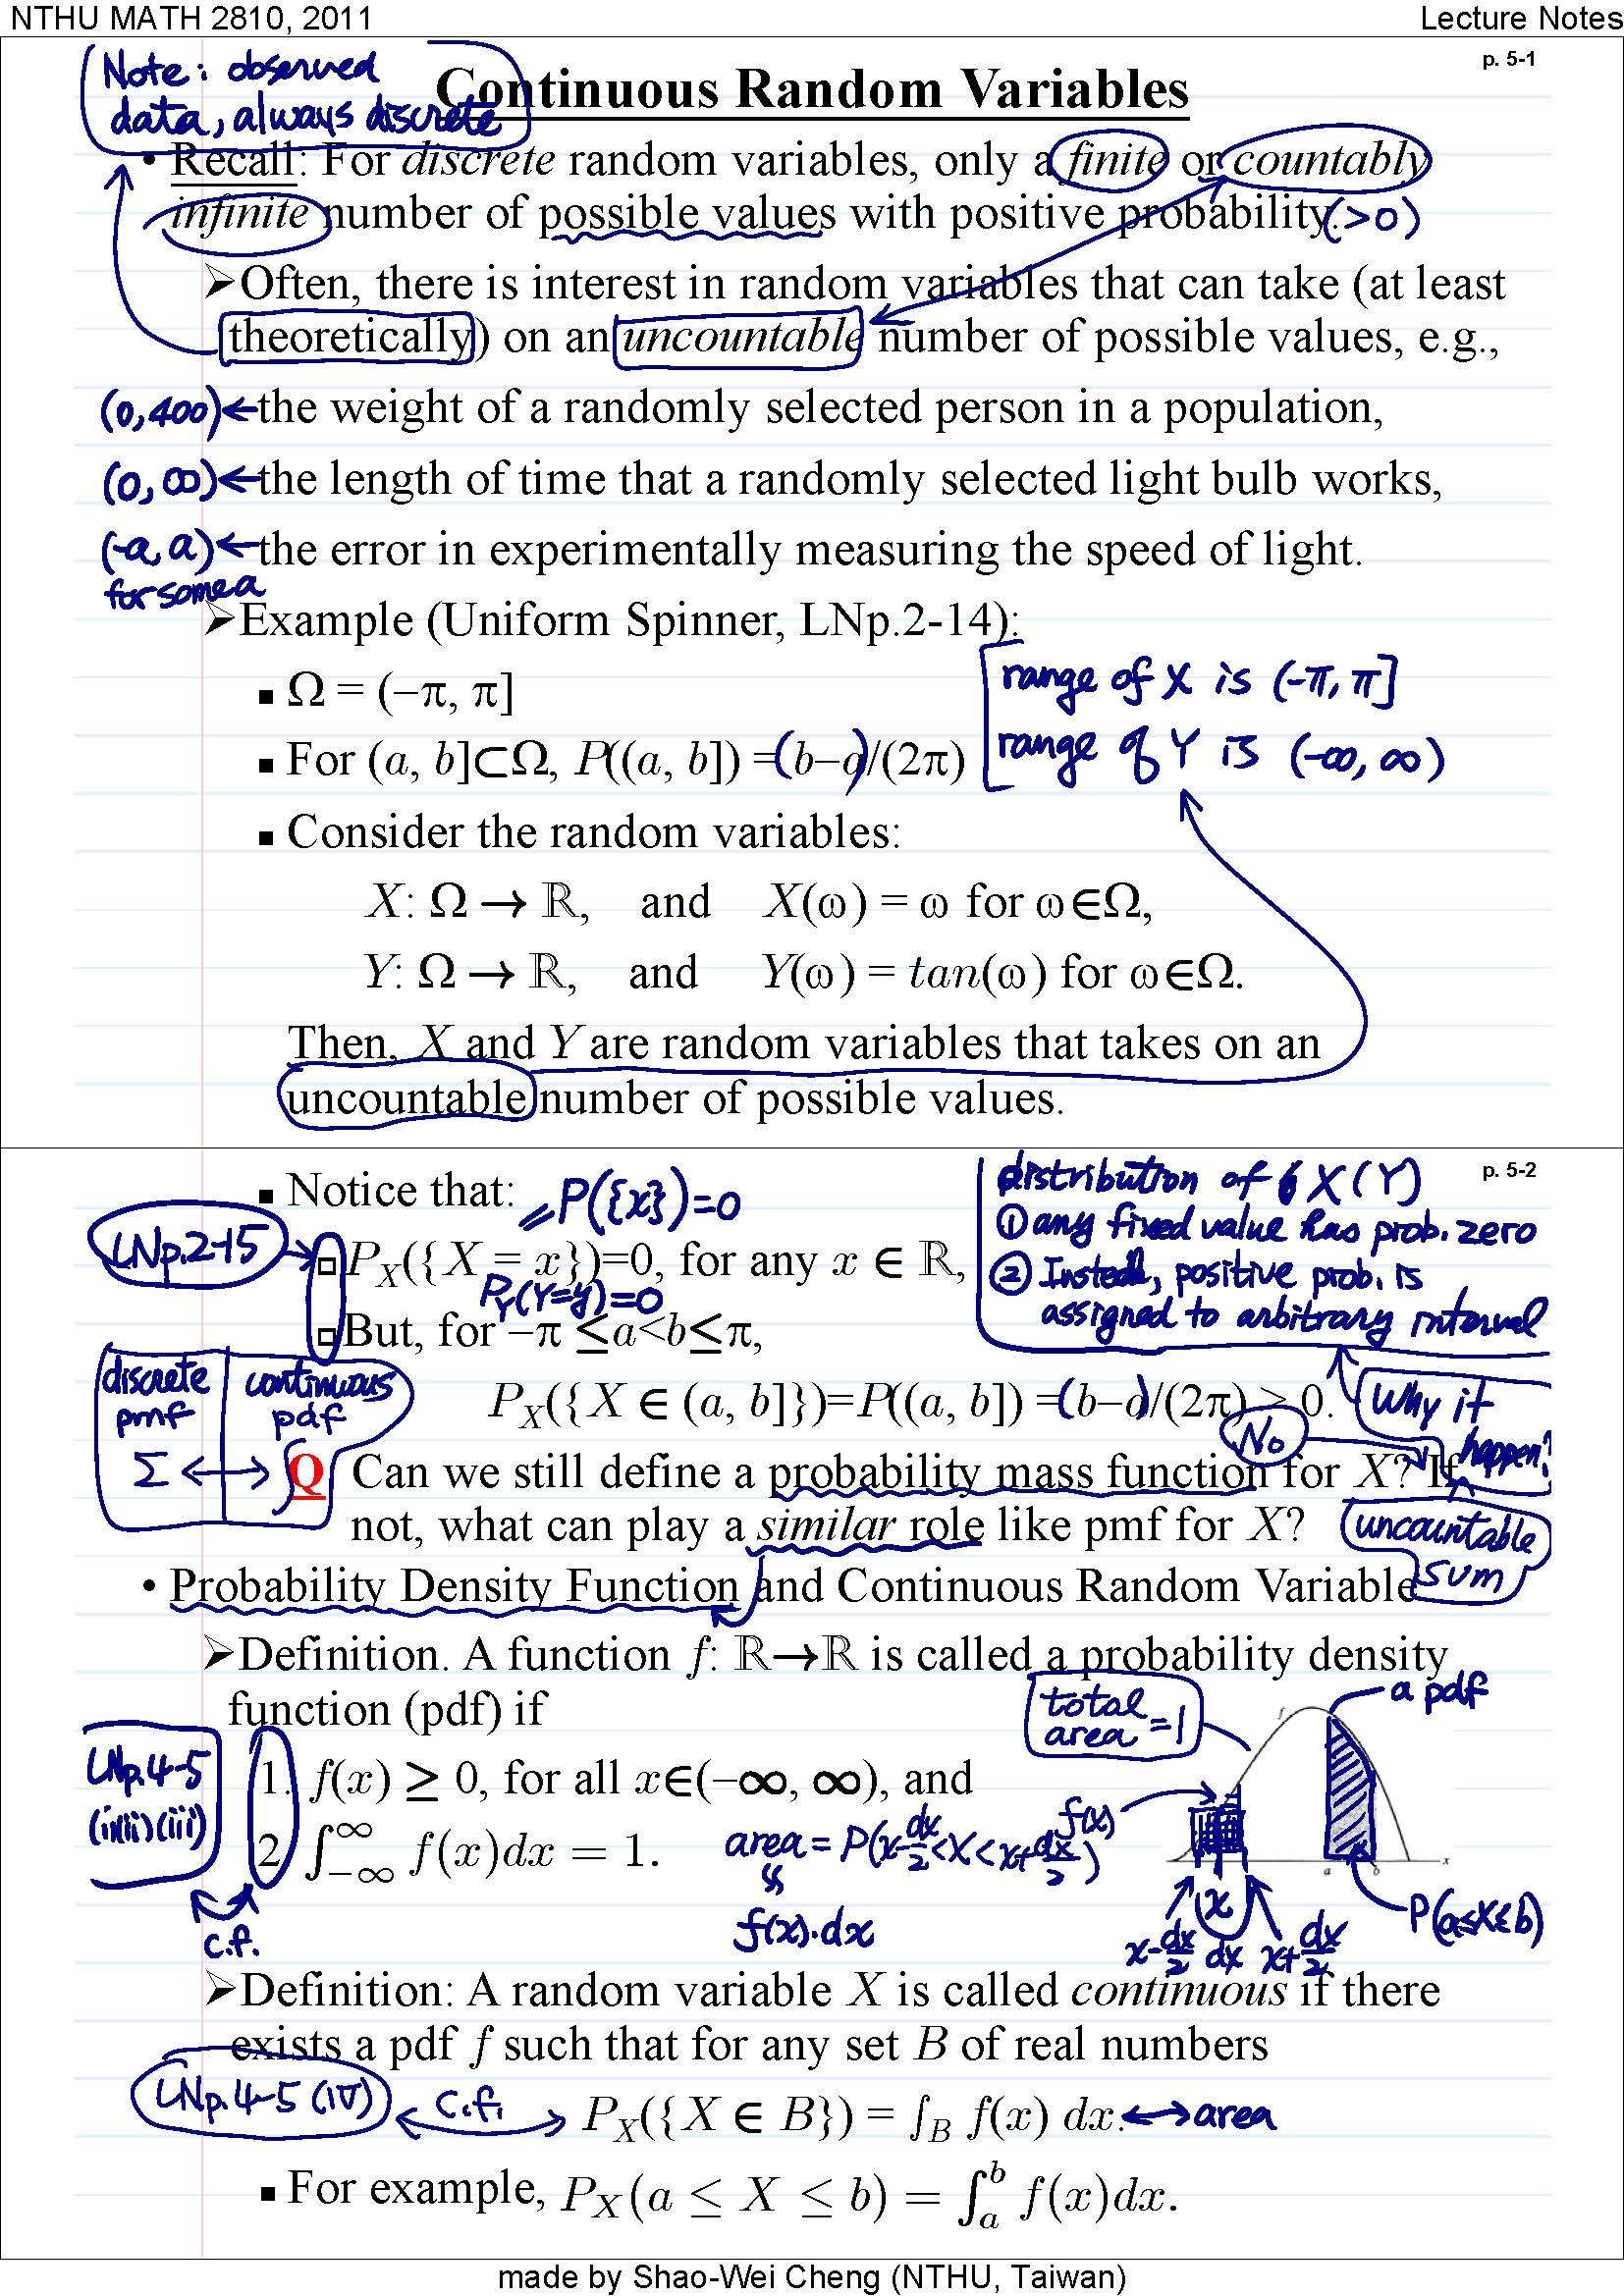 NTHU MATH 2810, 2011
Lecture Notes
p. 5-1
Note: observed
data, always discrete
Continuous Random Variables
• Recall: For discrete random variables, only a finite or countably
infinite number of possible values with positive probability. (>0)
➢Often, there is interest in random variables that can take (at least
theoretically) on an uncountable number of possible values, e.g.,
(0,400)←the weight of a randomly selected person in a population,
(0,∞)←the length of time that a randomly selected light bulb works,
(-a,a)←the error in experimentally measuring the speed of light.
for some a
➢Example (Uniform Spinner, LNp.2-14):
▪ Ω = (−π, π]
range of X is (-π, π]
▪ For (a, b]⊂Ω, P((a, b]) =(b−a)/(2π)
range of Y is (-∞, ∞)
▪ Consider the random variables:
X: Ω → ℝ, and X(ω) = ω for ω∈Ω,
Y: Ω → ℝ, and Y(ω) = tan(ω) for ω∈Ω.
Then, X and Y are random variables that takes on an
uncountable number of possible values.
p. 5-2
▪ Notice that:
P({x})=0
distribution of X(Y)
① any fixed value has prob. zero
② Instead, positive prob. is
assigned to arbitrary interval
LNp.2-15
▫ P_X({X = x})=0, for any x ∈ ℝ,
P_Y(Y=y)=0
▫ But, for −π ≤a<b≤π,
discrete
pmf
Σ ↔
continuous
pdf
P_X({X ∈ (a, b]})=P((a, b]) =(b−a)/(2π) > 0.
Why it
happen?
No
Q Can we still define a probability mass function for X? If
not, what can play a similar role like pmf for X?
uncountable
sum
• Probability Density Function and Continuous Random Variable
➢Definition. A function f: ℝ→ℝ is called a probability density
function (pdf) if
total
area =1
a pdf
LNp.4-5
(i)(ii)(iii)
c.f.
1. f(x) ≥ 0, for all x∈(−∞, ∞), and
2. ∫_{−∞}^{∞} f(x)dx = 1.
area = P(x-dx/2<X<x+dx/2)
f(x)·dx
f(x)
f
a b x
x
x-dx/2 dx x+dx/2
P(a≤X≤b)
➢Definition: A random variable X is called continuous if there
exists a pdf f such that for any set B of real numbers
LNp.4-5 (iv) c.f. P_X({X ∈ B}) = ∫_B f(x) dx. ↔area
▪ For example, P_X(a ≤ X ≤ b) = ∫_a^b f(x)dx.
made by Shao-Wei Cheng (NTHU, Taiwan)